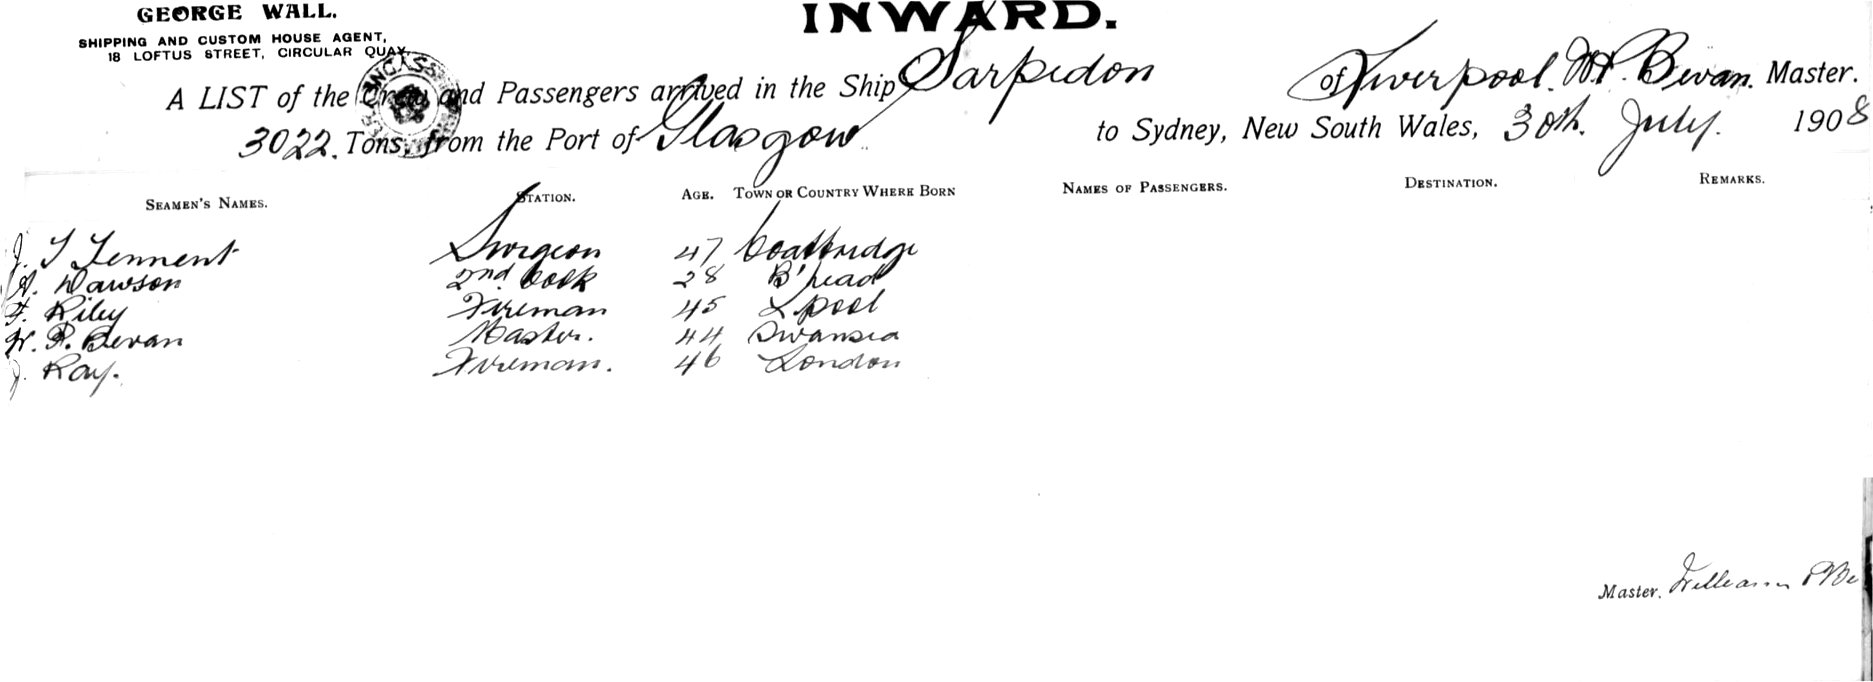 GEORGE WALL.
SHIPPING AND CUSTOM HOUSE AGENT,
18 LOFTUS STREET, CIRCULAR QUAY.
INWARD.
A LIST of the Crew and Passengers arrived in the Ship Sarpedon of Liverpool. W.P. Bevan. Master.
3022. Tons, from the Port of Glasgow to Sydney, New South Wales, 30th. July. 1908
SEAMEN'S NAMES. STATION. AGE. TOWN OR COUNTRY WHERE BORN NAMES OF PASSENGERS. DESTINATION. REMARKS.
J. T Tennent Surgeon 47 Coatbridge
A. Dawson 2nd. Cook 28 B'head
F. Riley Fireman 45 Lpool
W. P. Bevan Master. 44 Swansea
J. Ray. Fireman. 46 London
Master. William P Be